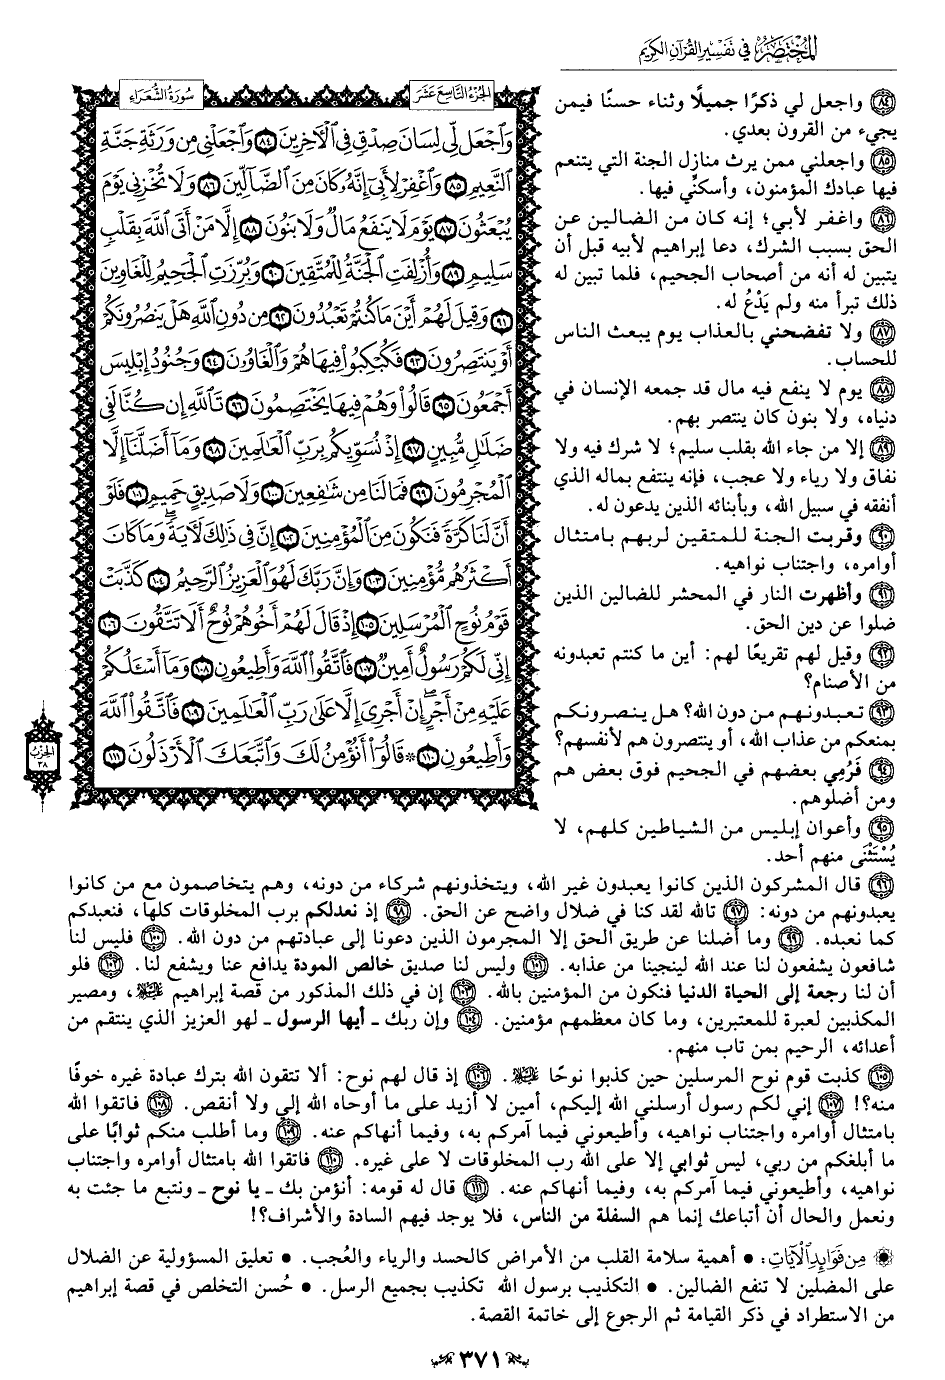 المختصر في تفسير القرآن الكريم
الجزء التاسع عشر
سورة الشعراء
وَٱجۡعَل لِّي لِسَانَ صِدۡقٖ فِي ٱلۡأٓخِرِينَ ٨٤ وَٱجۡعَلۡنِي مِن وَرَثَةِ جَنَّةِ
ٱلنَّعِيمِ ٨٥ وَٱغۡفِرۡ لِأَبِيٓ إِنَّهُۥ كَانَ مِنَ ٱلضَّآلِّينَ ٨٦ وَلَا تُخۡزِنِي يَوۡمَ
يُبۡعَثُونَ ٨٧ يَوۡمَ لَا يَنفَعُ مَالٞ وَلَا بَنُونَ ٨٨ إِلَّا مَنۡ أَتَى ٱللَّهَ بِقَلۡبٖ
سَلِيمٖ ٨٩ وَأُزۡلِفَتِ ٱلۡجَنَّةُ لِلۡمُتَّقِينَ ٩٠ وَبُرِّزَتِ ٱلۡجَحِيمُ لِلۡغَاوِينَ
٩١ وَقِيلَ لَهُمۡ أَيۡنَ مَا كُنتُمۡ تَعۡبُدُونَ ٩٢ مِن دُونِ ٱللَّهِ هَلۡ يَنصُرُونَكُمۡ
أَوۡ يَنتَصِرُونَ ٩٣ فَكُبۡكِبُواْ فِيهَا هُمۡ وَٱلۡغَاوُۥنَ ٩٤ وَجُنُودُ إِبۡلِيسَ
أَجۡمَعُونَ ٩٥ قَالُواْ وَهُمۡ فِيهَا يَخۡتَصِمُونَ ٩٦ تَٱللَّهِ إِن كُنَّا لَفِي
ضَلَٰلٖ مُّبِينٍ ٩٧ إِذۡ نُسَوِّيكُم بِرَبِّ ٱلۡعَٰلَمِينَ ٩٨ وَمَآ أَضَلَّنَآ إِلَّا
ٱلۡمُجۡرِمُونَ ٩٩ فَمَا لَنَا مِن شَٰفِعِينَ ١٠٠ وَلَا صَدِيقٍ حَمِيمٖ ١٠١ فَلَوۡ
أَنَّ لَنَا كَرَّةٗ فَنَكُونَ مِنَ ٱلۡمُؤۡمِنِينَ ١٠٢ إِنَّ فِي ذَٰلِكَ لَأٓيَةٗۖ وَمَا كَانَ
أَكۡثَرُهُم مُّؤۡمِنِينَ ١٠٣ وَإِنَّ رَبَّكَ لَهُوَ ٱلۡعَزِيزُ ٱلرَّحِيمُ ١٠٤ كَذَّبَتۡ
قَوۡمُ نُوحٍ ٱلۡمُرۡسَلِينَ ١٠٥ إِذۡ قَالَ لَهُمۡ أَخُوهُمۡ نُوحٌ أَلَا تَتَّقُونَ ١٠٦
إِنِّي لَكُمۡ رَسُولٌ أَمِينٞ ١٠٧ فَٱتَّقُواْ ٱللَّهَ وَأَطِيعُونِ ١٠٨ وَمَآ أَسۡـَٔلُكُمۡ
عَلَيۡهِ مِنۡ أَجۡرٍۖ إِنۡ أَجۡرِيَ إِلَّا عَلَىٰ رَبِّ ٱلۡعَٰلَمِينَ ١٠٩ فَٱتَّقُواْ ٱللَّهَ
وَأَطِيعُونِ ١١٠ ۞ قَالُوٓاْ أَنُؤۡمِنُ لَكَ وَٱتَّبَعَكَ ٱلۡأَرۡذَلُونَ ١١١
الحزب
٣٨
٨٤ واجعل لي ذكرًا جميلًا وثناء حسنًا فيمن
يجيء من القرون بعدي.
٨٥ واجعلني ممن يرث منازل الجنة التي يتنعم
فيها عبادك المؤمنون، وأسكنِّي فيها.
٨٦ واغفر لأبي؛ إنه كان من الضالين عن
الحق بسبب الشرك، دعا إبراهيم لأبيه قبل أن
يتبين له أنه من أصحاب الجحيم، فلما تبين له
ذلك تبرأ منه ولم يَدْعُ له.
٨٧ ولا تفضحني بالعذاب يوم يبعث الناس
للحساب.
٨٨ يوم لا ينفع فيه مال قد جمعه الإنسان في
دنياه، ولا بنون كان ينتصر بهم.
٨٩ إلا من جاء الله بقلب سليم؛ لا شرك فيه ولا
نفاق ولا رياء ولا عجب، فإنه ينتفع بماله الذي
أنفقه في سبيل الله، وبأبنائه الذين يدعون له.
٩٠ وقربت الجنة للمتقين لربهم بامتثال
أوامره، واجتناب نواهيه.
٩١ وأظهرت النار في المحشر للضالين الذين
ضلوا عن دين الحق.
٩٢ وقيل لهم تقريعًا لهم: أين ما كنتم تعبدونه
من الأصنام؟
٩٣ تعبدونهم من دون الله؟ هل ينصرونكم
بمنعكم من عذاب الله، أو ينتصرون هم لأنفسهم؟
٩٤ فَرُمِي بعضهم في الجحيم فوق بعض هم
ومن أضلوهم.
٩٥ وأعوان إبليس من الشياطين كلهم، لا
يُسْتَثْنَى منهم أحد.
٩٦ قال المشركون الذين كانوا يعبدون غير الله، ويتخذونهم شركاء من دونه، وهم يتخاصمون مع من كانوا
يعبدونهم من دونه: ٩٧ تالله لقد كنا في ضلال واضح عن الحق. ٩٨ إذ نعدلكم برب المخلوقات كلها، فنعبدكم
كما نعبده. ٩٩ وما أضلنا عن طريق الحق إلا المجرمون الذين دعونا إلى عبادتهم من دون الله. ١٠٠ فليس لنا
شافعون يشفعون لنا عند الله لينجينا من عذابه. ١٠١ وليس لنا صديق خالص المودة يدافع عنا ويشفع لنا. ١٠٢ فلو
أن لنا رجعة إلى الحياة الدنيا فنكون من المؤمنين بالله. ١٠٣ إن في ذلك المذكور من قصة إبراهيم عليه السلام، ومصير
المكذبين لعبرة للمعتبرين، وما كان معظمهم مؤمنين. ١٠٤ وإن ربك ـ أيها الرسول ـ لهو العزيز الذي ينتقم من
أعدائه، الرحيم بمن تاب منهم.
١٠٥ كذبت قوم نوح المرسلين حين كذبوا نوحًا عليه السلام. ١٠٦ إذ قال لهم نوح: ألا تتقون الله بترك عبادة غيره خوفًا
منه؟! ١٠٧ إني لكم رسول أرسلني الله إليكم، أمين لا أزيد على ما أوحاه الله إلي ولا أنقص. ١٠٨ فاتقوا الله
بامتثال أوامره واجتناب نواهيه، وأطيعوني فيما آمركم به، وفيما أنهاكم عنه. ١٠٩ وما أطلب منكم ثوابًا على
ما أبلغكم من ربي، ليس ثوابي إلا على الله رب المخلوقات لا على غيره. ١١٠ فاتقوا الله بامتثال أوامره واجتناب
نواهيه، وأطيعوني فيما آمركم به، وفيما أنهاكم عنه. ١١١ قال له قومه: أنؤمن بك ـ يا نوح ـ ونتبع ما جئت به
ونعمل والحال أن أتباعك إنما هم السفلة من الناس، فلا يوجد فيهم السادة والأشراف؟!
من فوائد الآيات: • أهمية سلامة القلب من الأمراض كالحسد والرياء والعُجب. • تعليق المسؤولية عن الضلال
على المضلين لا تنفع الضالين. • التكذيب برسول الله تكذيب بجميع الرسل. • حُسن التخلص في قصة إبراهيم
من الاستطراد في ذكر القيامة ثم الرجوع إلى خاتمة القصة.
٣٧١